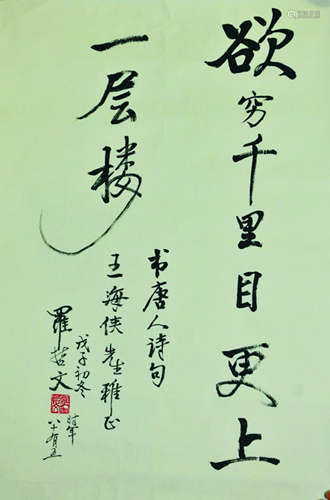 欲穷千里目更上
一层楼
书唐人诗句
王海侠先生雅正
戊子初冬
罗哲文
时年
八十有五